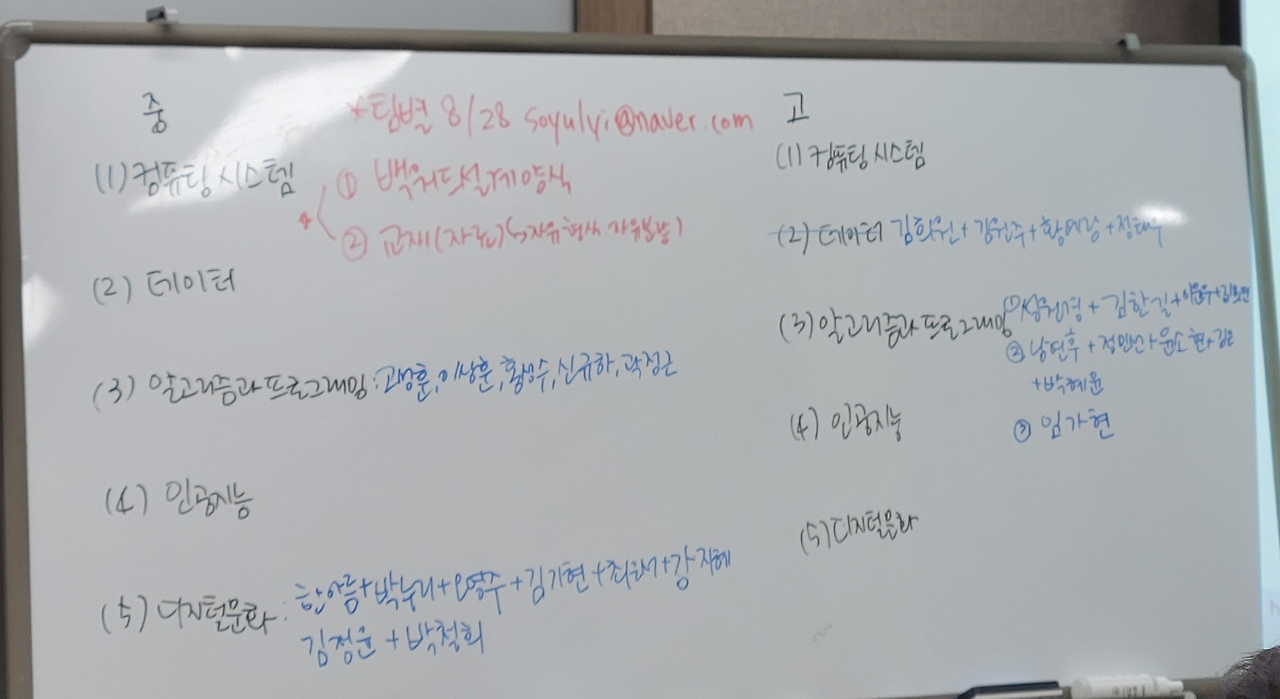 중
*팀별 8/28 soyulyi@naver.com
(1) 컴퓨팅 시스템
* ① 백워드설계양식
② 교재(자료)
(2) 데이터
(3) 알고리즘과 프로그래밍 : 고성훈, 이상훈, 황성수, 신규하, 곽정근
(4) 인공지능
(5) 디지털문화 : 한아름+박누리+오영주+김기현+최원서+강지혜
김정윤+박철희
고
(1) 컴퓨팅 시스템
(2) 데이터 김희원+김원주+황예랑+정태우
(3) 알고리즘과 프로그래밍 ① +김한길+
② 남연후+정민선+윤소현+
+박혜윤
③ 임가현
(4) 인공지능
(5) 디지털문화